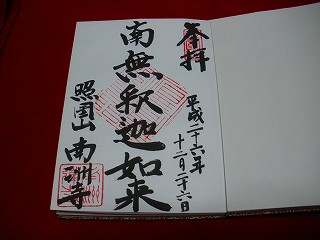 奉拝
平成二十六年
十二月二十六日
南無釈迦如来
照国山 南洲寺